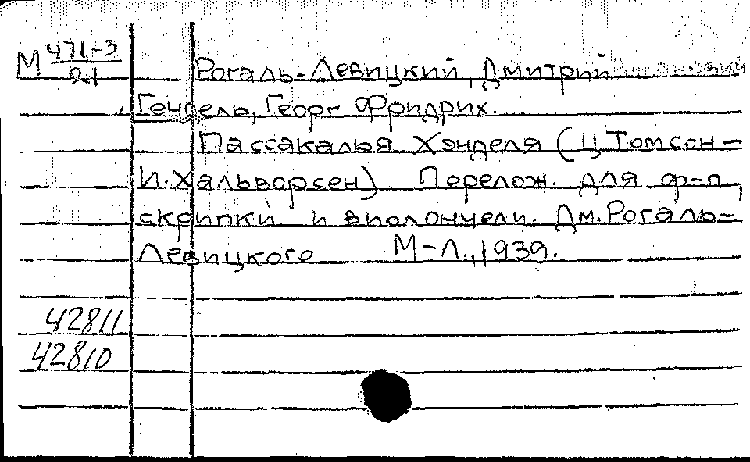 М 471-3
Рогаль-Левицкий, Дмитрий
Гендель, Георг Фридрих.
Пассакалья Хэнделя (Ц. Томсон-
И. Хальворсен) Перелож. для ф-п,
скрипки и виолончели. Дм. Рогаль-
Левицкого М-Л., 1939.
42811
42810